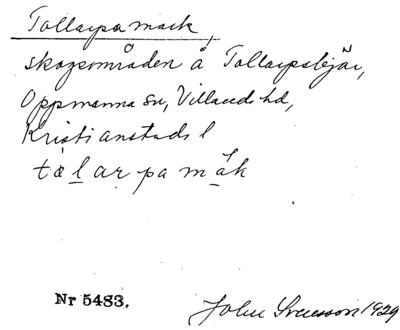 Tollarpa mack,
skogsområden å Tollarpsbjär,
Oppmanna sn, Villands hd,
Kristianstads l
tɷlarpa måk
Nr 5483.
John Svensson 1929